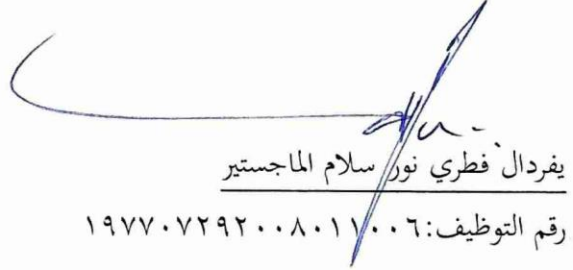 يفردال فطري نور سلام الماجستير
رقم التوظيف: ١٩٧٧٠٧٢٩٢٠٠٨٠١١٠٠٦